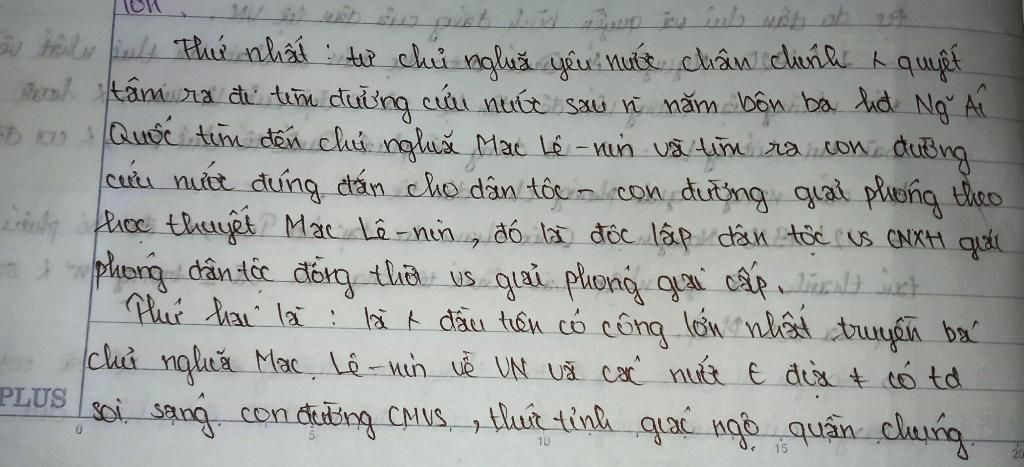 lớn.
Thứ nhất : từ chủ nghĩa yêu nước chân chính & quyết
tâm ra đi tìm đường cứu nước sau n năm bôn ba hđ Ng~ Ái
Quốc tìm đến chủ nghĩa Mac Lê-nin và tìm ra con đường
cứu nước đúng đắn cho dân tộc - con đường giải phóng theo
học thuyết Mac Lê-nin, đó là độc lập dân tộc vs CNXH giải
phóng dân tộc đồng thời vs giải phóng giai cấp.
Thứ hai là : là đầu tiên có công lớn nhất truyền bá
chủ nghĩa Mac. Lê-nin về VN và các nước địa có td
PLUS soi sáng con đường CMVS, thức tỉnh giác ngộ quần chúng
0 5 10 15 20